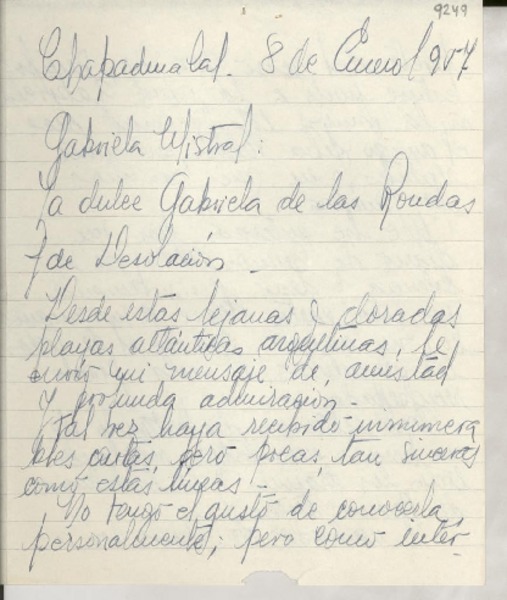 9249
Chapadmalal. 8 de Enero 1957
Gabriela Mistral:
La dulce Gabriela de las Rondas
y de Desolación -
Desde estas lejanas y doradas
playas atlánticas argentinas, le
envío mi mensaje de amistad
y profunda admiración -
Tal vez haya recibido innumera
bles cartas, pero pocas, tan sinceras
como estas líneas -
No tengo el gusto de conocerla
personalmente; pero como intér-